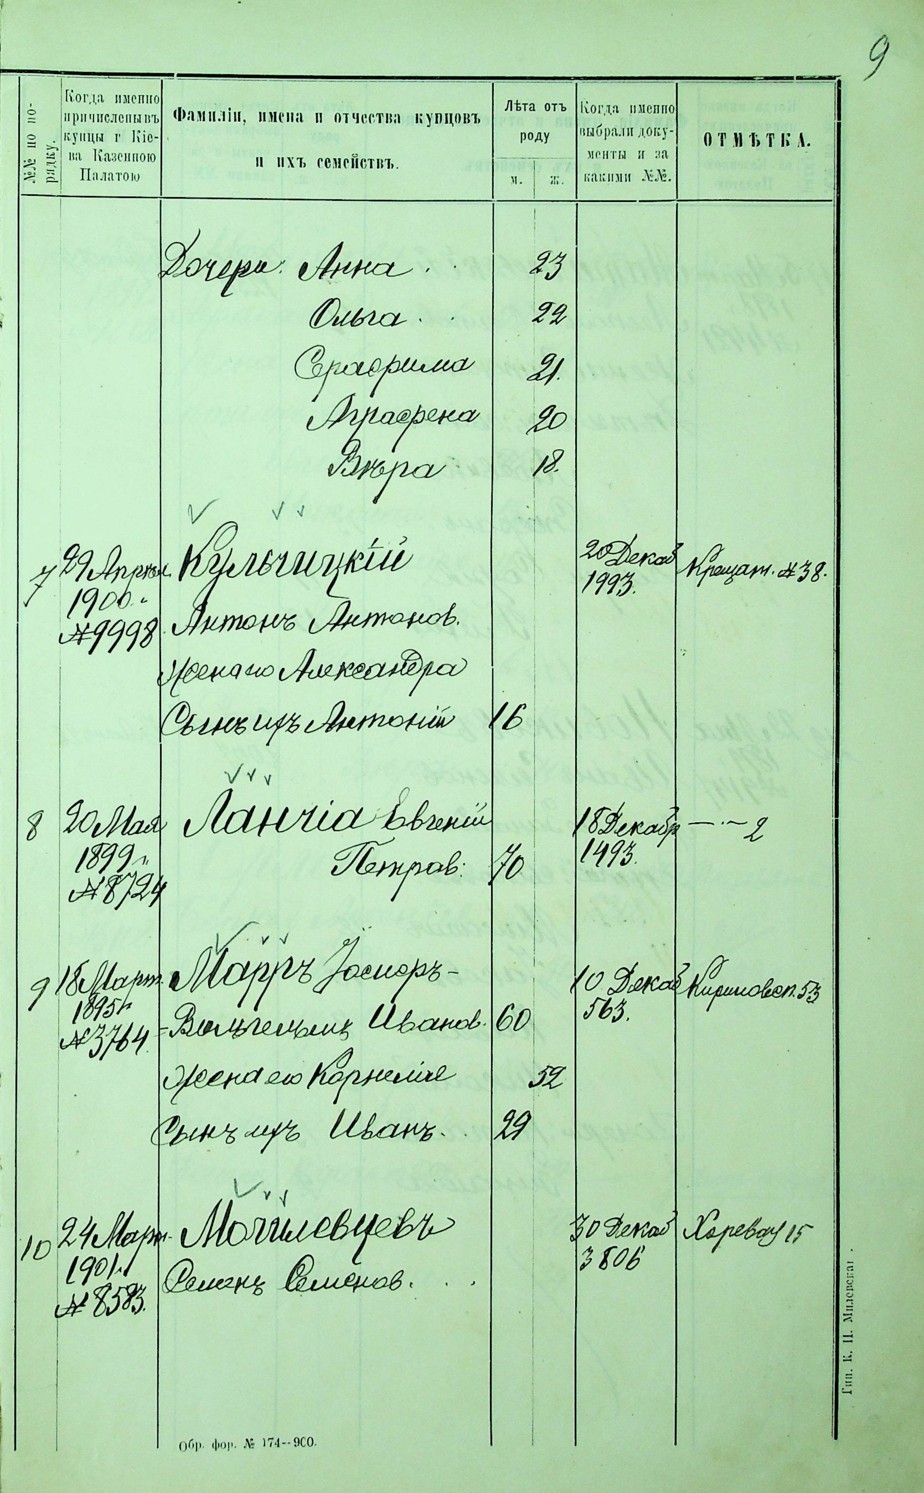 9
№№ по по-
рядку.
Когда именно
причислены въ
купцы г Кіе-
ва Казенною
Палатою
Фамиліи, имена и отчества купцовъ
и ихъ семействъ.
Лѣта отъ
роду
м. ж.
Когда именно
выбрали доку-
менты и за
какими №№.
ОТМѢТКА.
Дочери: Анна . . 23
Ольга . . 22
Серафима 21.
Аграфена 20
Вѣра 18.
7 29 Апрѣля Кульчицкій 20 Декаб Крещат. № 38.
1900 г. 1993.
№ 9998 Антонъ Антонов.
Жена его Александра
Сынъ ихъ Антоній 16
8 20 Мая Ланчіа Евгеній 18 Декабр —·— 2
1899 г. Петров. 70 1493.
№ 8724
9 18 Март Маръ Іосифъ- 10 Декаб Кириловск. 53
1895 г. 563.
№ 3764 =Вильгельмъ Иванов. 60
Жена его Корнелія 52
Сынъ ихъ Иванъ. . 29
10 24 Март Могилевцевъ 30 Декаб Хорева 15
1901 г. 3806
№ 8583. Семенъ Семенов. . .
Обр. фор. № 174--900.
Тип. К. Н. Милевска